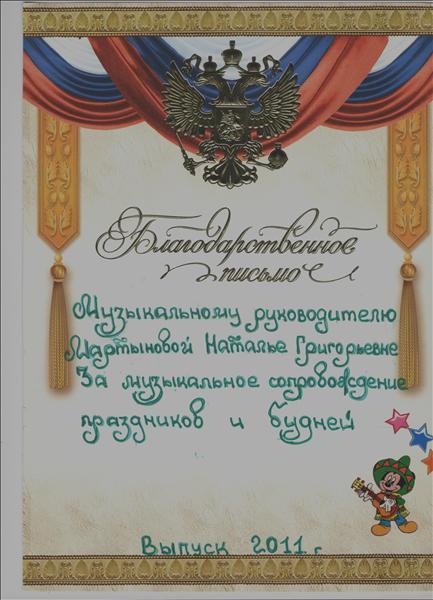 Благодарственное
письмо
Музыкальному руководителю
Мартыновой Наталье Григорьевне
За музыкальное сопровождение
праздников и будней
Выпуск 2011 г.